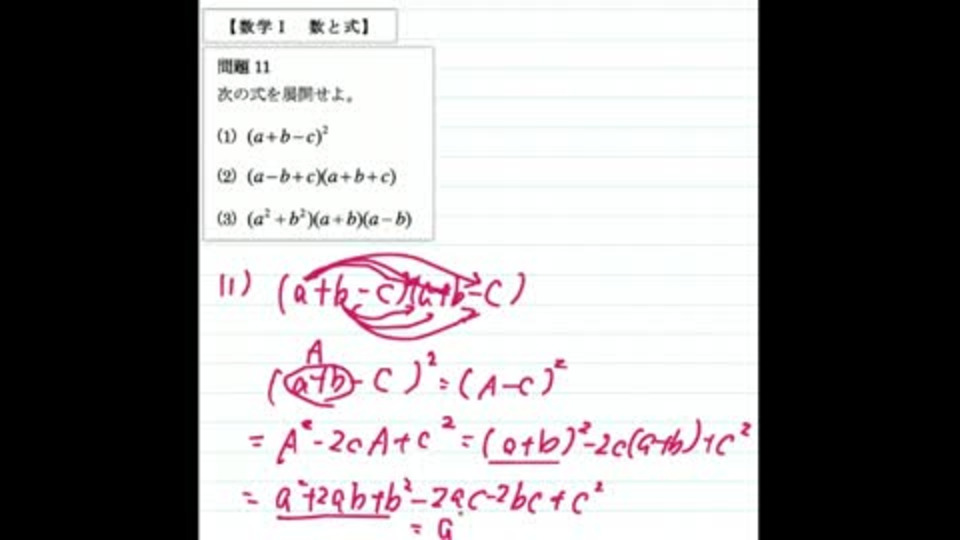 【数学Ⅰ 数と式】
問題 11
次の式を展開せよ。
(1) (a+b−c)²
(2) (a−b+c)(a+b+c)
(3) (a²+b²)(a+b)(a−b)
(1) (a+b−c)(a+b−c)
A
(a+b−c)²=(A−c)²
=A²−2cA+c²=(a+b)²−2c(a+b)+c²
=a²+2ab+b²−2ac−2bc+c²
=a